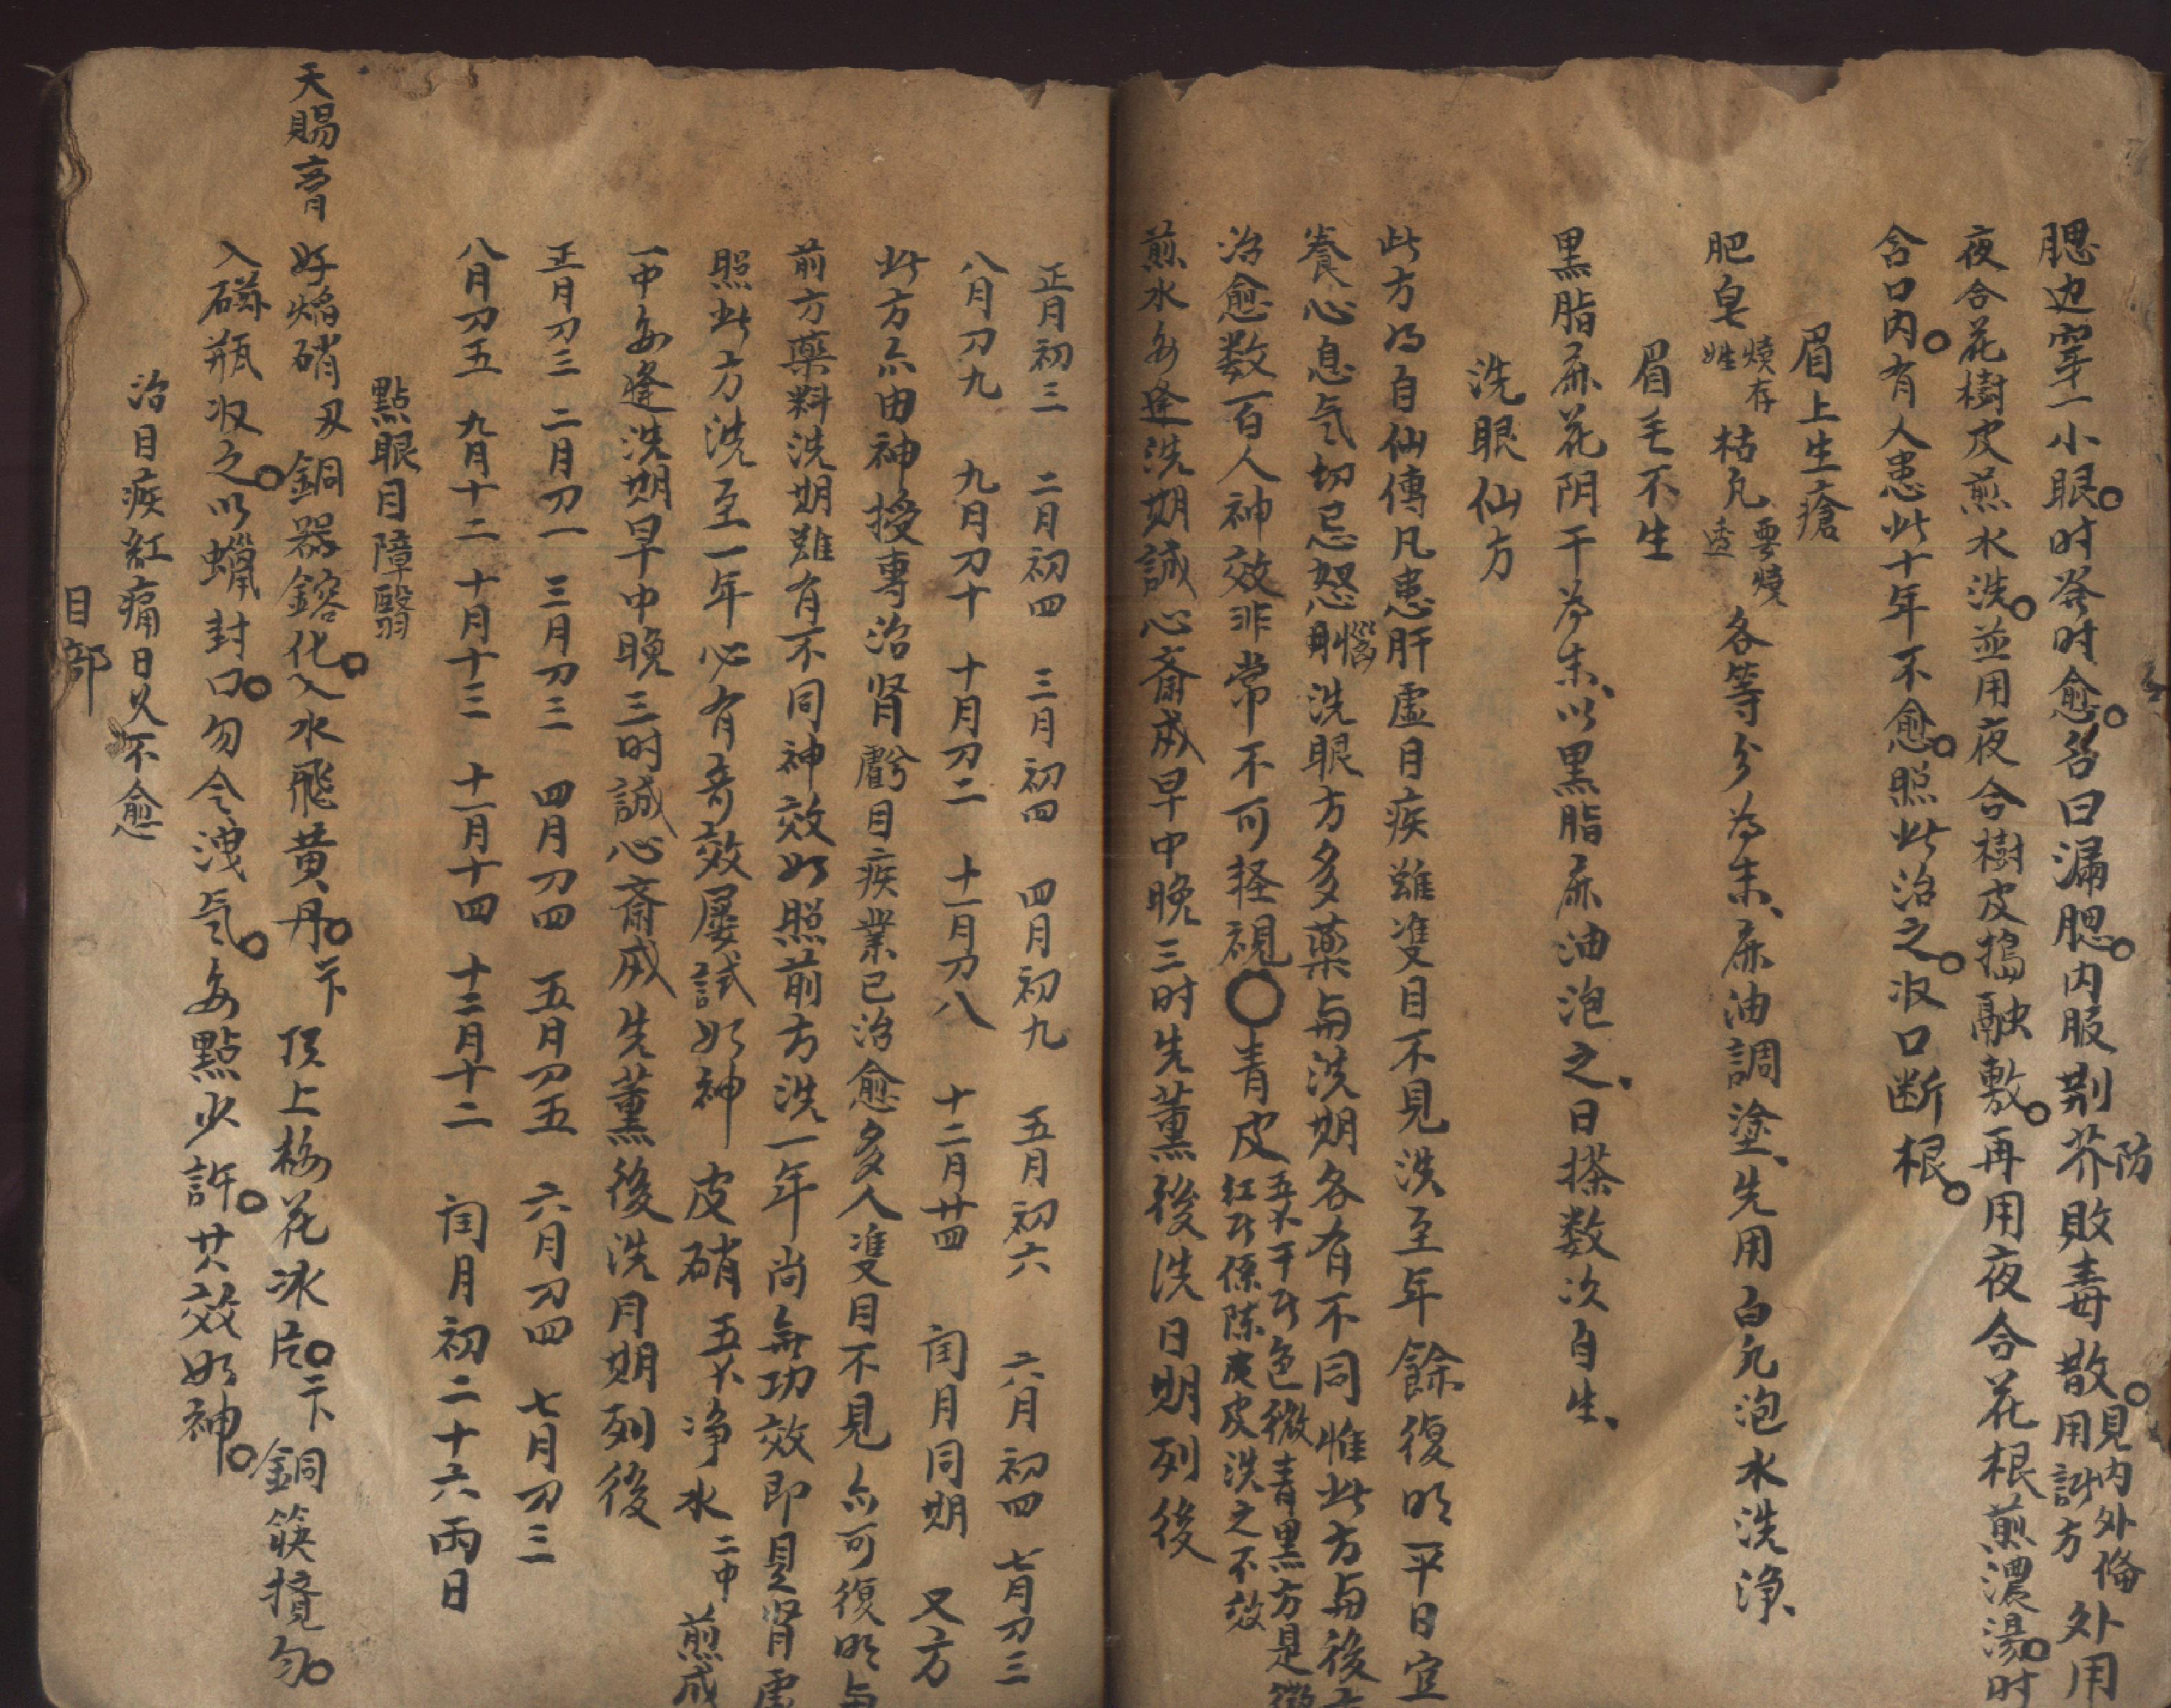 腮边穿一小眼时发时愈名曰漏腮内服荆芥防敗毒散見内外備用諸方外用
夜合花樹皮煎水洗並用夜合樹皮搗融敷再用夜合花根煎濃湯时
含口内有人患此十年不愈照此治之収口断根
眉上生瘡
肥皂燒存姓枯凡要燒透各等分为末麻油調塗先用白凡泡水洗淨
眉毛不生
黒脂麻花阴干为末以黒脂麻油泡之日搽数次自生
洗眼仙方
此方乃自仙傳凡患肝虛目疾雖雙目不見洗至年餘復明平日宜
養心息气切忌怒惱洗眼方多藥与洗期各有不同惟此方与後
治愈数百人神效非常不可轻視〇青皮五个干者色微青黒方是
红者係陈皮洗之不效
煎水每逢洗期誠心齋戒早中晚三时先薰後洗日期列後
正月初三 二月初四 三月初四 四月初九 五月初六 六月初四 七月刀三
八月刀九 九月刀十 十月刀二 十一月刀八 十二月廿四 闰月同期 又方
此方亦由神授專治肾虧目疾業已治愈多人雙目不見亦可復明与
前方藥料洗期雖有不同神效如照前方洗一年尚無功效即是肾虛
照此方洗至一年必有奇效屡試如神 皮硝五个净水二中煎成
一中每逢洗期早中晚三时誠心齋戒先薰後洗月期列後
正月刀三 二月刀一 三月刀三 四月刀四 五月刀五 六月刀四 七月刀三
八月刀五 九月十二 十月十三 十一月十四 十二月十二 闰月初二十六兩日
點眼目障翳
天賜膏 好焰硝刄銅器鎔化入水飛黄丹卞頂上梅花冰片二卞銅筷攪匀
入磁瓶収之以蠟封口勿令洩气每點少許其效如神
治目疾紅痛日久不愈
目部